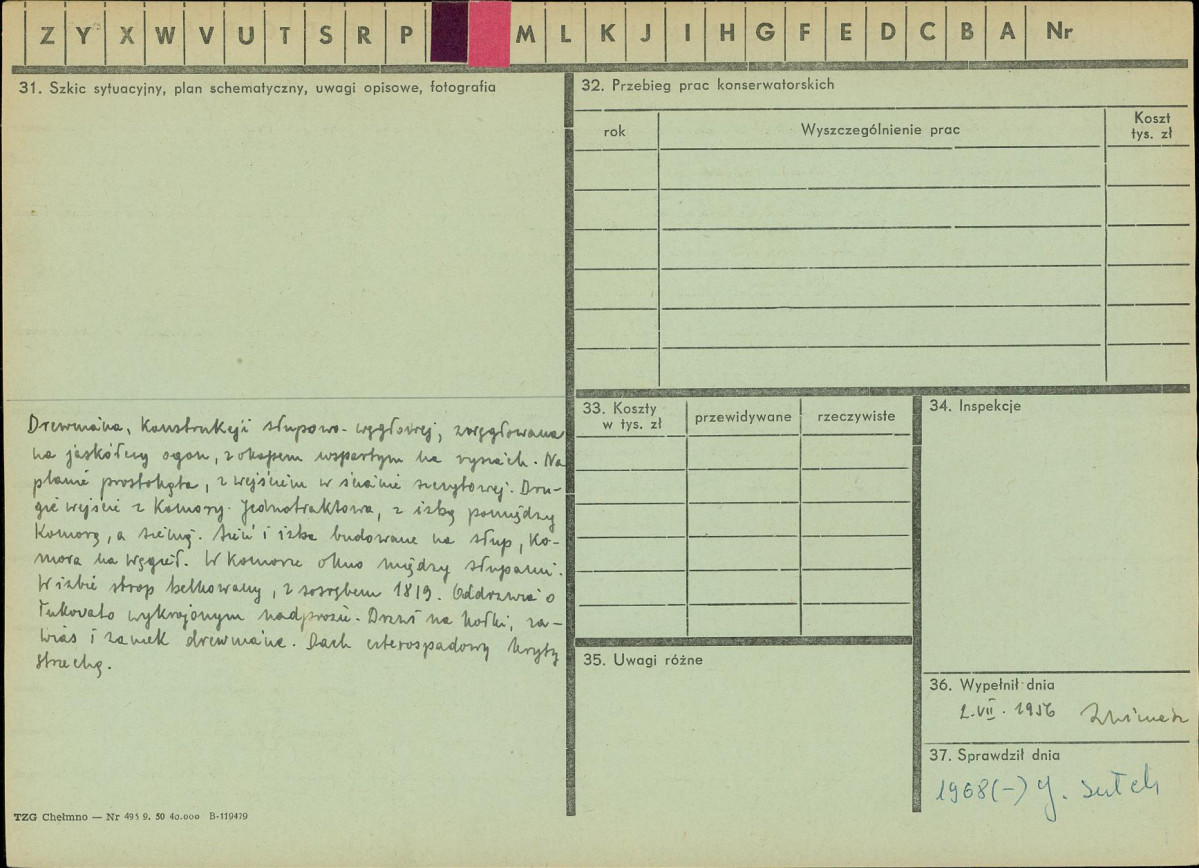 Z Y X W V U T S R P M L K J I H G F E D C B A Nr
31. Szkic sytuacyjny, plan schematyczny, uwagi opisowe, fotografia
Drewniana, konstrukcji słupowo-węgłowej, zwęgłowana
na jaskółczy ogon, z okapem wspartym na rysiach. Na
planie prostokąta, z wejściem w ścianie szczytowej. Dru-
gie wejście z komory. Jednotraktowa, z izbą pomiędzy
komorą, a sienią. Sień i izba budowane na słup, ko-
mora na węgieł. W komorze okno między słupami.
W izbie strop belkowany, z sosrębem 1819. Oddrzwia o
łukowato wykrojonym nadprożu. Drzwi na kołki, za-
wias i zamek drewniane. Dach czterospadowy kryty
strzechą.
TZG Chełmno — Nr 495 9. 50 40.000 B-119479
32. Przebieg prac konserwatorskich
rok
Wyszczególnienie prac
Koszt
tys. zł
33. Koszty
w tys. zł
przewidywane
rzeczywiste
34. Inspekcje
35. Uwagi różne
36. Wypełnił dnia
2.VII. 1956
37. Sprawdził dnia
1968(-) J.